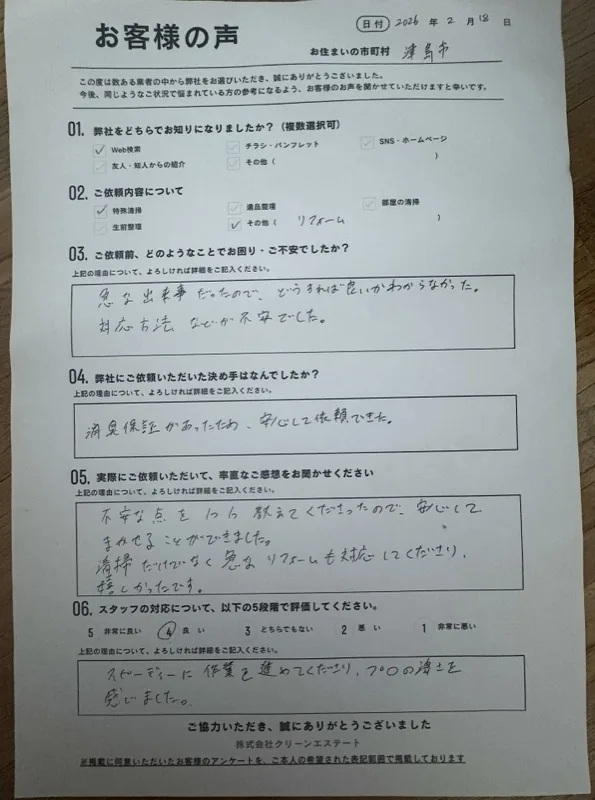 お客様の声
日付 2026 年 2 月 18 日
お住まいの市町村 津島市
この度は数ある業者の中から弊社をお選びいただき、誠にありがとうございました。
今後、同じようなご状況で悩まれている方の参考になるよう、お客様のお声を聞かせていただけますと幸いです。
01. 弊社をどちらでお知りになりましたか？（複数選択可）
✓ Web検索 ✓ チラシ・パンフレット ✓ SNS・ホームページ
✓ 友人・知人からの紹介 ✓ その他（ ）
02. ご依頼内容について
✓ 特殊清掃 ✓ 遺品整理 ✓ 部屋の清掃
✓ 生前整理 ✓ その他（ リフォーム ）
03. ご依頼前、どのようなことでお困り・ご不安でしたか？
上記の理由について、よろしければ詳細をご記入ください。
急な出来事だったので、どうすれば良いかわからなかった。
対応方法などが不安でした。
04. 弊社にご依頼いただいた決め手はなんでしたか？
上記の理由について、よろしければ詳細をご記入ください。
消臭保証があったため、安心して依頼できた。
05. 実際にご依頼いただいて、率直なご感想をお聞かせください
上記の理由について、よろしければ詳細をご記入ください。
不安な点を 教えてくださったので、安心して
まかせることができました。
清掃だけでなく急なリフォームも対応してくださり、
嬉しかったです。
06. スタッフの対応について、以下の5段階で評価してください。
5 非常に良い 4 良い 3 どちらでもない 2 悪い 1 非常に悪い
上記の理由について、よろしければ詳細をご記入ください。
スピーディーに作業を進めてくださり、プロの凄さを
感じました。
ご協力いただき、誠にありがとうございました
株式会社クリーンエステート
※掲載に同意いただいたお客様のアンケートを、ご本人の希望された表記範囲で掲載しております